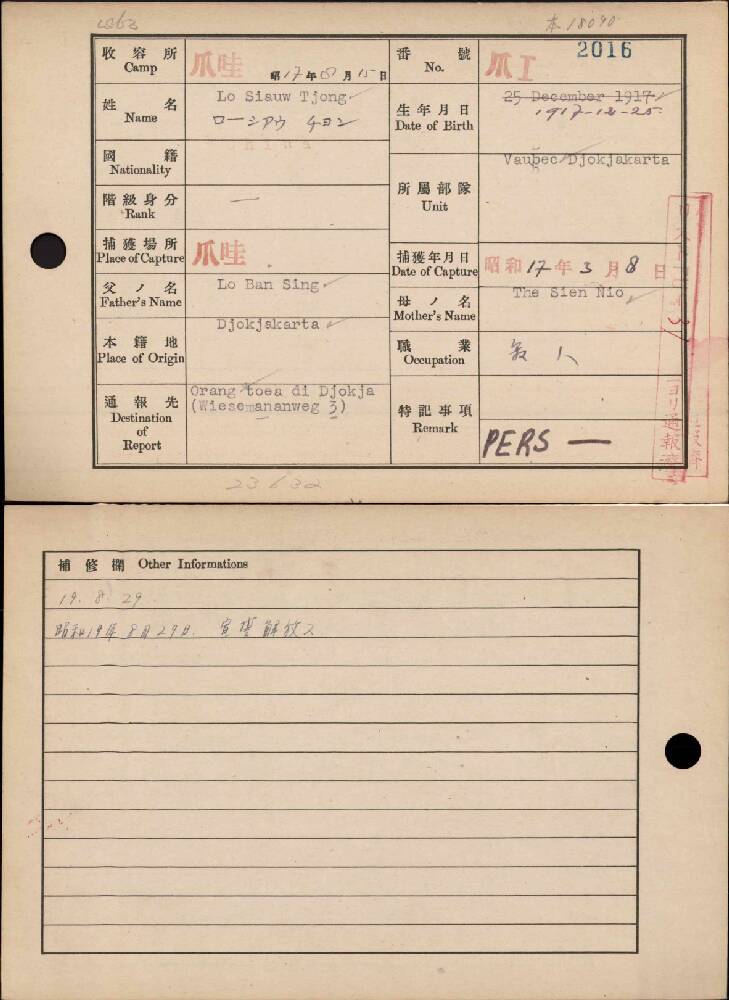 本18090
收容所 Camp 爪哇 昭17年8月15日
番號 No. 爪工 2016
姓名 Name Lo Siauw Tjong
ローシアウ チョン
生年月日 Date of Birth 25 December 1917
1917-12-25
國籍 Nationality
所屬部隊 Unit Vaubec Djokjakarta
階級身分 Rank 一
捕獲場所 Place of Capture 爪哇
捕獲年月日 Date of Capture 昭和17年3月8日
父ノ名 Father's Name Lo Ban Sing
母ノ名 Mother's Name The Sien Nio
本籍地 Place of Origin Djokjakarta
職業 Occupation
通報先 Destination of Report Orang toea di Djokja
(Wiesemananweg 3)
特記事項 Remark PERS —
ヨリ通報濟
23632
補修欄 Other Informations
19. 8. 29
昭和19年8月29日. 宣誓解放ス